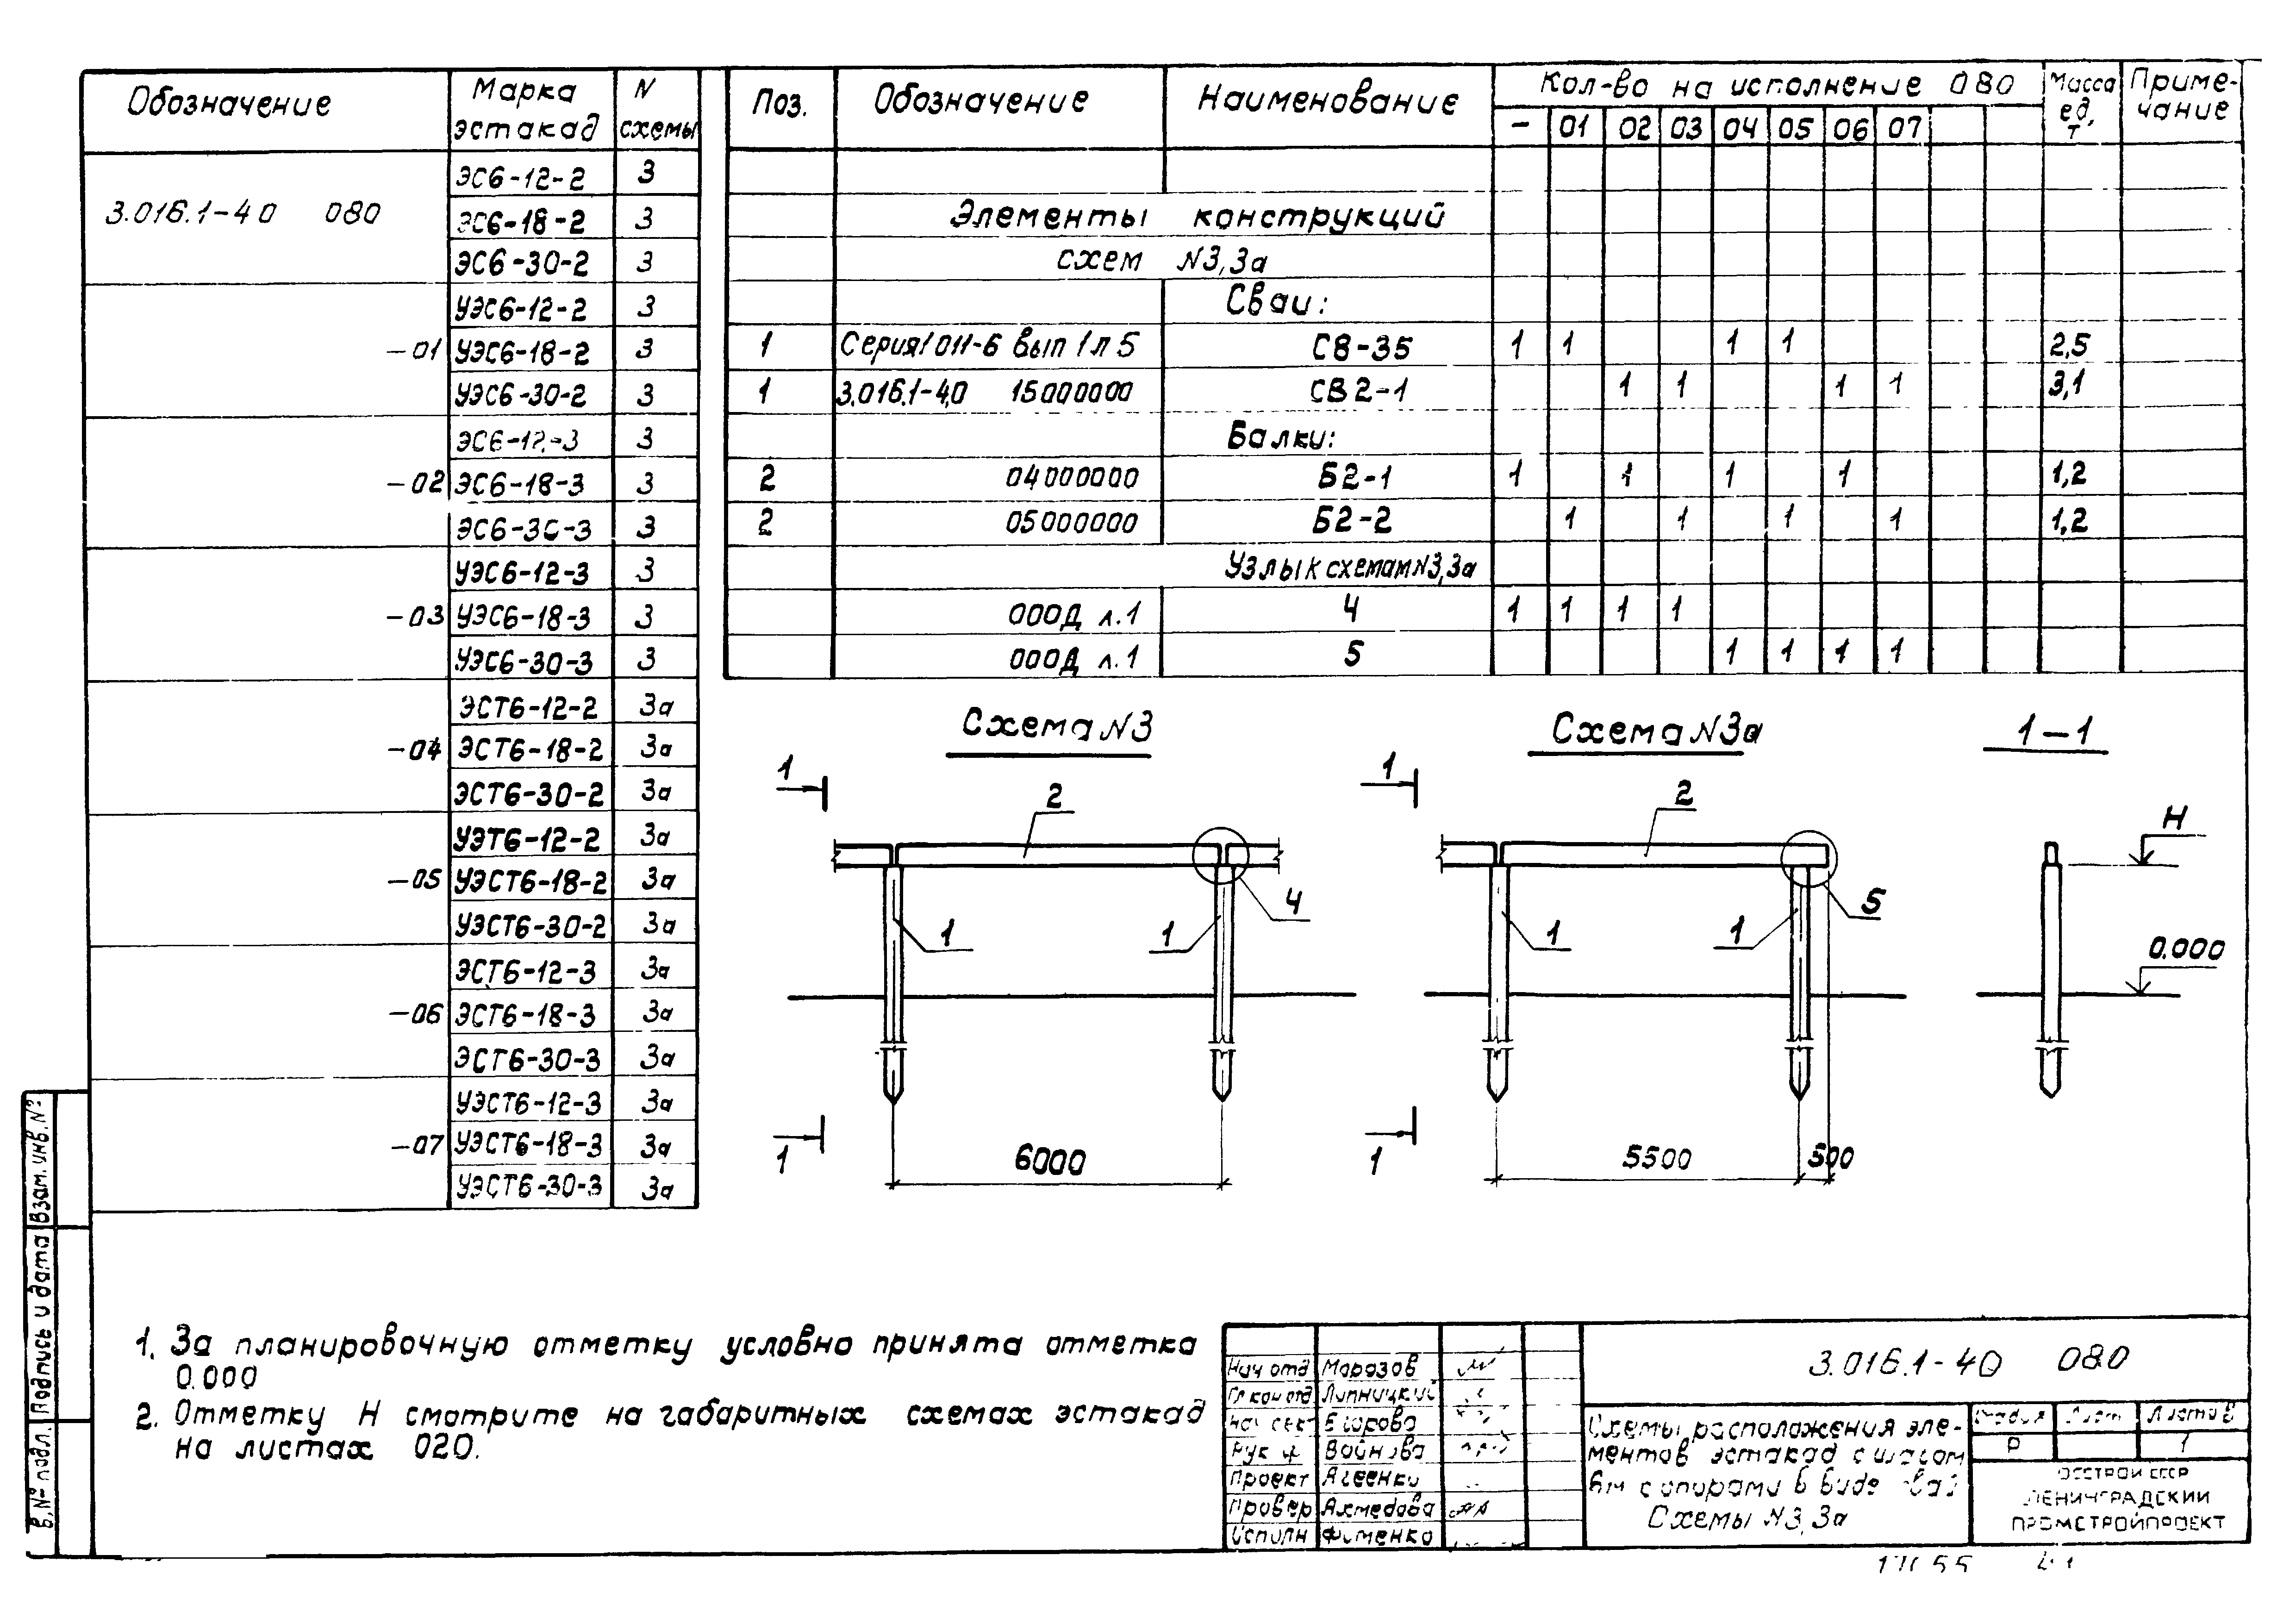 Обозначение Марка эстакад N схемы
3.016.1-40 080 ЭС6-12-2 3
ЭС6-18-2 3
ЭС6-30-2 3
УЭС6-12-2 3
-01 УЭС6-18-2 3
УЭС6-30-2 3
ЭС6-12-3 3
-02 ЭС6-18-3 3
ЭС6-30-3 3
УЭС6-12-3 3
-03 УЭС6-18-3 3
УЭС6-30-3 3
ЭСТ6-12-2 3а
-04 ЭСТ6-18-2 3а
ЭСТ6-30-2 3а
УЭТ6-12-2 3а
-05 УЭСТ6-18-2 3а
УЭСТ6-30-2 3а
ЭСТ6-12-3 3а
-06 ЭСТ6-18-3 3а
ЭСТ6-30-3 3а
УЭСТ6-12-3 3а
-07 УЭСТ6-18-3 3а
УЭСТ6-30-3 3а
Поз. Обозначение Наименование Кол-во на исполнение 080 Масса ед, т Приме-чание
- 01 02 03 04 05 06 07
Элементы конструкций
схем N3,3а
Сваи:
1 Серия 1 011-6 вып 1 л 5 С8-35 1 1 1 1 2,5
1 3.016.1-40 15000000 СВ2-1 1 1 1 1 3,1
Балки:
2 04000000 Б2-1 1 1 1 1 1,2
2 05000000 Б2-2 1 1 1 1 1,2
Узлы к схемам N3,3а
000Д л.1 4 1 1 1 1
000Д л.1 5 1 1 1 1
Схема N3
1
2
4
1 1
6000
1
Схема N3а
1
2
5
1 1
5500 500
1
1-1
Н
0.000
1. За планировочную отметку условно принята отметка
0.000
2. Отметку Н смотрите на габаритных схемах эстакад
на листах 020.
Взам. инв. №
Подпись и дата
№ подл.
Нач отд Морозов
Гл кон отд Липницкий
Нач сект Егорова
Рук гр Войнова
Проект Агеенки
Провер Ахмедова
Исполн Фоменко
3.016.1-40 080
Схемы расположения эле-
ментов эстакад с шагом
6м с опорами в виде свай
Схемы N3,3а
Стадия Лист Листов
Р 1
ГОССТРОЙ СССР
ЛЕНИНГРАДСКИЙ
ПРОМСТРОЙПРОЕКТ